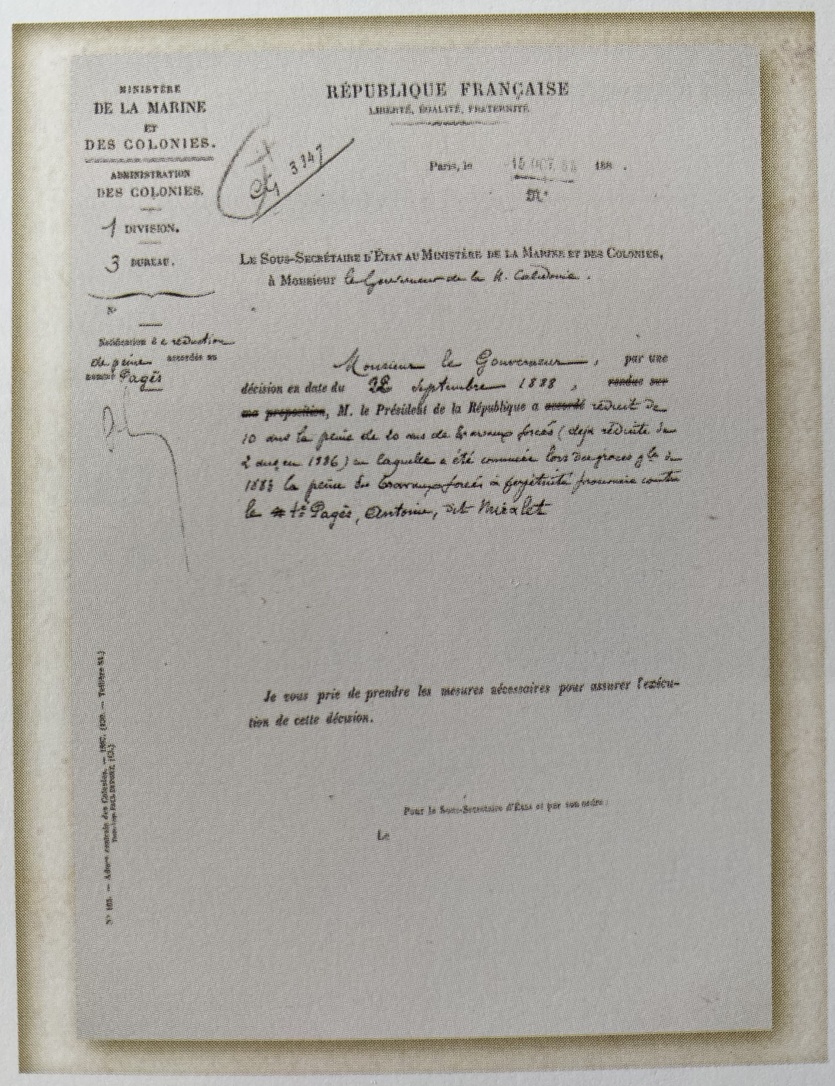 MINISTÈRE
DE LA MARINE
ET
DES COLONIES.
ADMINISTRATION
DES COLONIES.
1 DIVISION.
3 BUREAU.
N°
Notification de réduction
de peine accordée au
nommé Pagès
RÉPUBLIQUE FRANÇAISE
LIBERTÉ, ÉGALITÉ, FRATERNITÉ
3347
Paris, le 15 OCT. 188 .
LE SOUS-SECRÉTAIRE D'ÉTAT AU MINISTÈRE DE LA MARINE ET DES COLONIES,
à MONSIEUR le Gouverneur de la N. Calédonie.
Monsieur le Gouverneur, par une
décision en date du 22 Septembre 1888, rendue sur
ma proposition, M. le Président de la République a accordé réduit de
10 ans la peine de 20 ans de travaux forcés (déjà réduite de
2 ans en 1886) en laquelle a été commuée lors des graces gles de
1883 la peine des travaux forcés à perpétuité prononcée contre
le Pagès, Antoine, dit Miralet
Je vous prie de prendre les mesures nécessaires pour assurer l'exécu-
tion de cette décision.
Pour le Sous-Secrétaire d'État et par son ordre:
Le
N° 165. — Admon centrale des Colonies. — 1887. (129. — Tellière 84.)